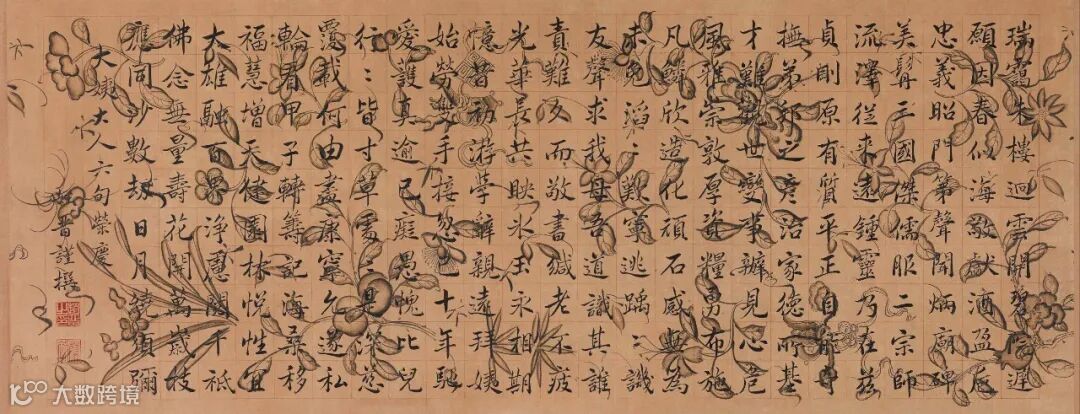 瑞靄朱樓迥雲開碧院遲
願因春似海敬獻酒盈卮
忠義昭門第聲聞炳廟碑
美髯三國傑儒服二宗師
流澤從來遠鍾靈乃在茲
貞則原有質平正自
撫弟邦之彥治家德所基
才難世變事辦見心危
風雅崇敦厚資糧勇布施
凡鱗欣造化頑石感典為
未免滔〻歎寧逃踽〻譏
友聲求我母吾道識其誰
責難又而敬書緘老不疲
光華長共映冰玉永相期
憶昔初游學辭親遠拜姨
始勞雙手接忽〻十年馳
愛護真逾己癡愚愧比兒
行〻皆寸草愛〻見深慈
覆載何由蓋康寧允遂私
輪看甲子轉籌記海桑移
福慧增天健園林悅性宜
大雄融百界淨慮閱千祇
佛念無量壽花開萬歲枝
應同少數劫日月繞須彌
大姨大人六旬榮慶
晉謹撰
大数跨境